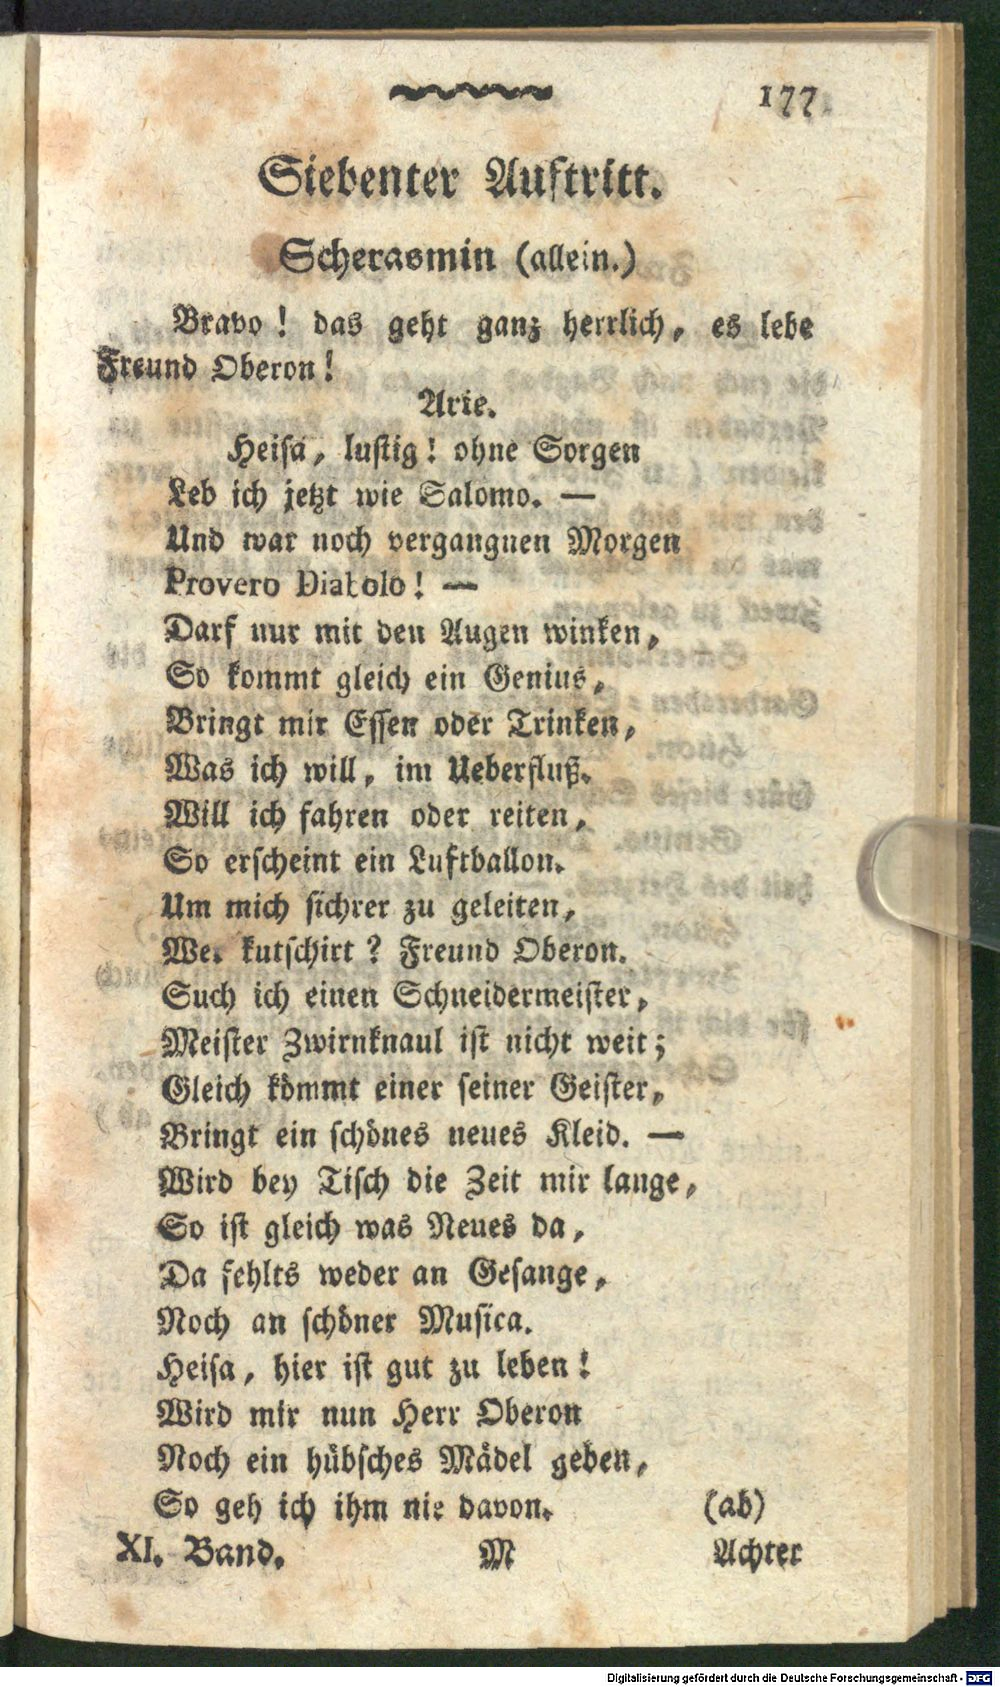 177
Siebenter Auftritt.
Scherasmin (allein.)
Bravo! das geht ganz herrlich, es lebe
Freund Oberon!
Arie.
Heisa, lustig! ohne Sorgen
Leb ich jetzt wie Salomo. —
Und war noch vergangnen Morgen
Provero Diabolo! —
Darf nur mit den Augen winken,
So kommt gleich ein Genius,
Bringt mir Essen oder Trinken,
Was ich will, im Ueberfluß.
Will ich fahren oder reiten,
So erscheint ein Luftballon.
Um mich sichrer zu geleiten,
Wer kutschirt? Freund Oberon.
Such ich einen Schneidermeister,
Meister Zwirnknaul ist nicht weit;
Gleich kömmt einer seiner Geister,
Bringt ein schönes neues Kleid. —
Wird bey Tisch die Zeit mir lange,
So ist gleich was Neues da,
Da fehlts weder an Gesange,
Noch an schöner Musica.
Heisa, hier ist gut zu leben!
Wird mir nun Herr Oberon
Noch ein hübsches Mädel geben,
So geh ich ihm nie davon. (ab)
XI. Band. M Achter
Digitalisierung gefördert durch die Deutsche Forschungsgemeinschaft - DFG